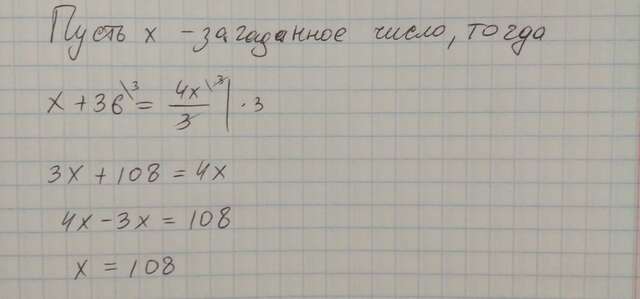 Пусть x - загаданное число, тогда
x + 36\3 = 4x\3/3 | · 3
3x + 108 = 4x
4x - 3x = 108
x = 108